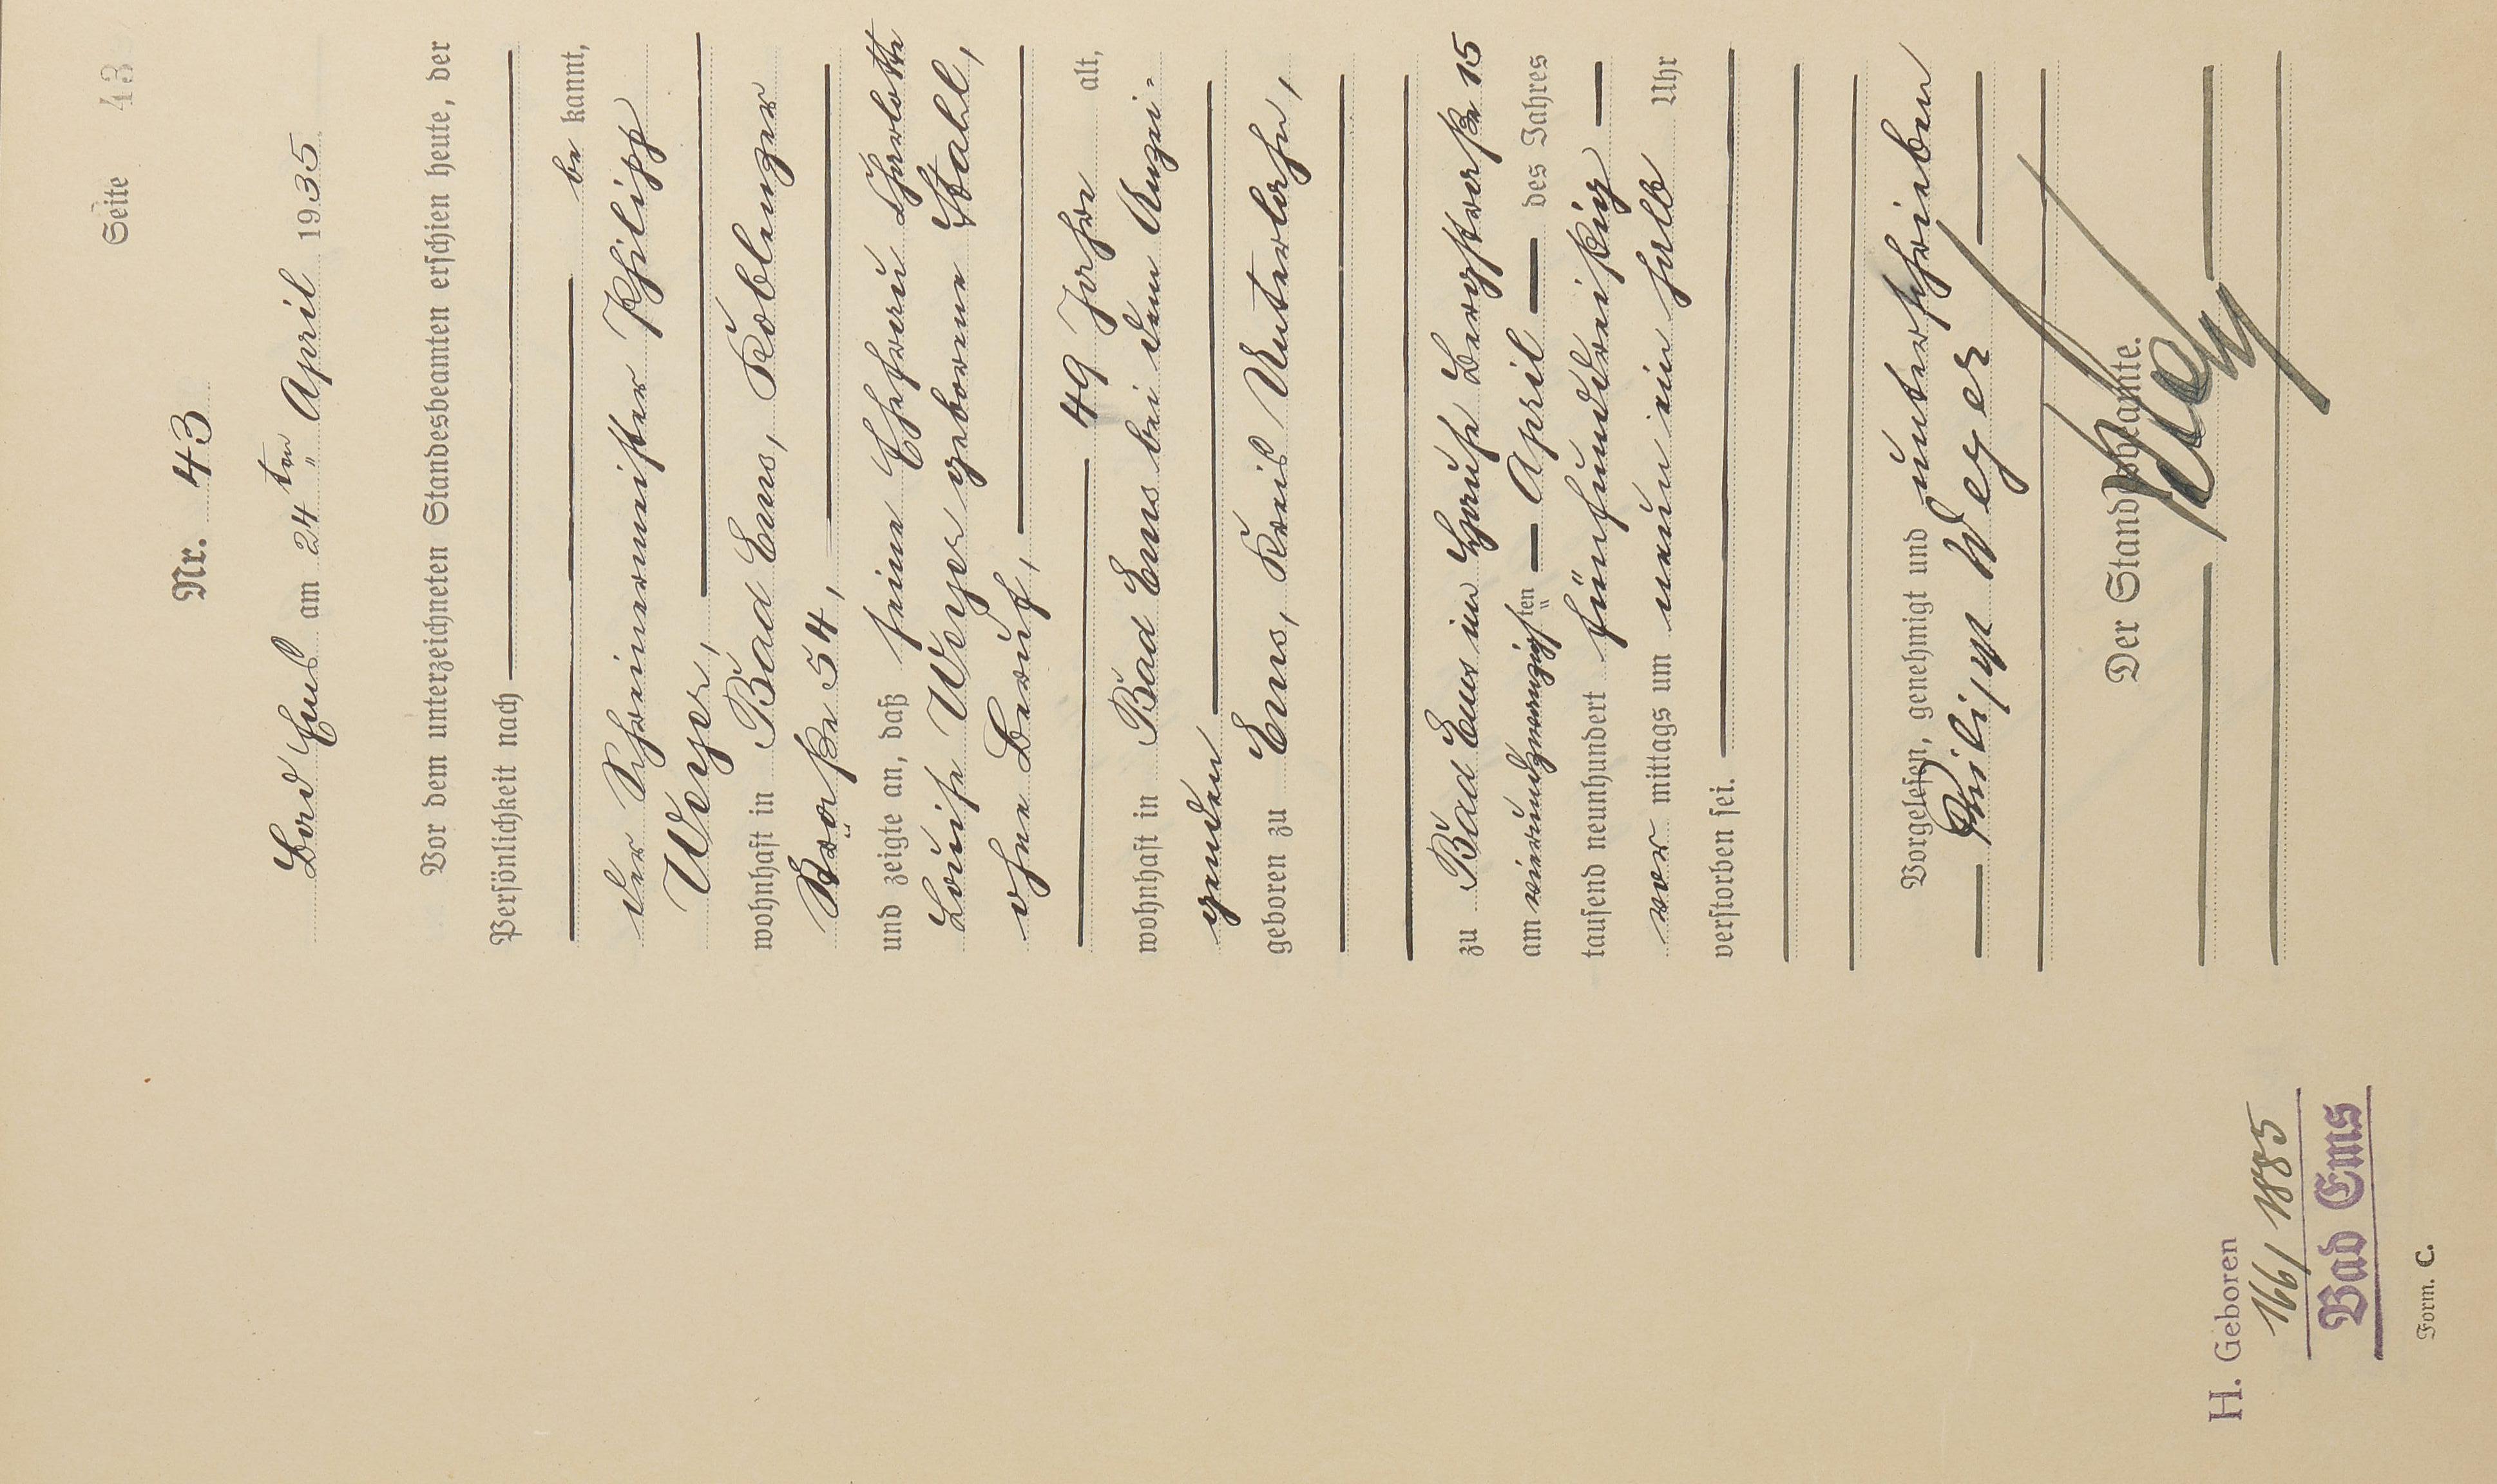 Seite 43
Nr. 43
Bad Ems am 24ten April 1935
Vor dem unterzeichneten Standesbeamten erschien heute, der
Persönlichkeit nach
be kannt,
der Schreinermeister Philipp
Weyer,
wohnhaft in Bad Ems, Koblenzer
Straße 54,
und zeigte an, daß seine Ehefrau Charlotte
Louise Weyer geborene Stahl,
ohne Beruf,
49 Jahre alt,
wohnhaft in Bad Ems bei dem Anzei-
genden
geboren zu Ems, Kreis Unterlahn,
zu Bad Ems im Hause Bergstraße 15
am vierundzwanzigsten April des Jahres
tausend neunhundert fünfunddreißig
vor mittags um neun ein halb Uhr
verstorben sei.
Vorgelesen, genehmigt und unterschrieben
Philipp Weyer
Der Standesbeamte.
H. Geboren
166/1885
Bad Ems
Form. C.